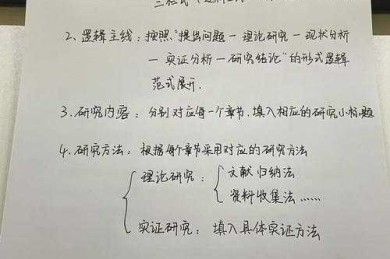 2、逻辑主线：按照“提出问题—理论研究—现状分析
—实证分析—研究结论”的形式逻辑
范式展开.
3、研究内容：分别对应每一个章节，填入相应的研究小标题
4、研究方法：根据每个章节采用对应的研究方法
理论研究：文献归纳法
资料收集法……
实证研究：填入具体实证方法